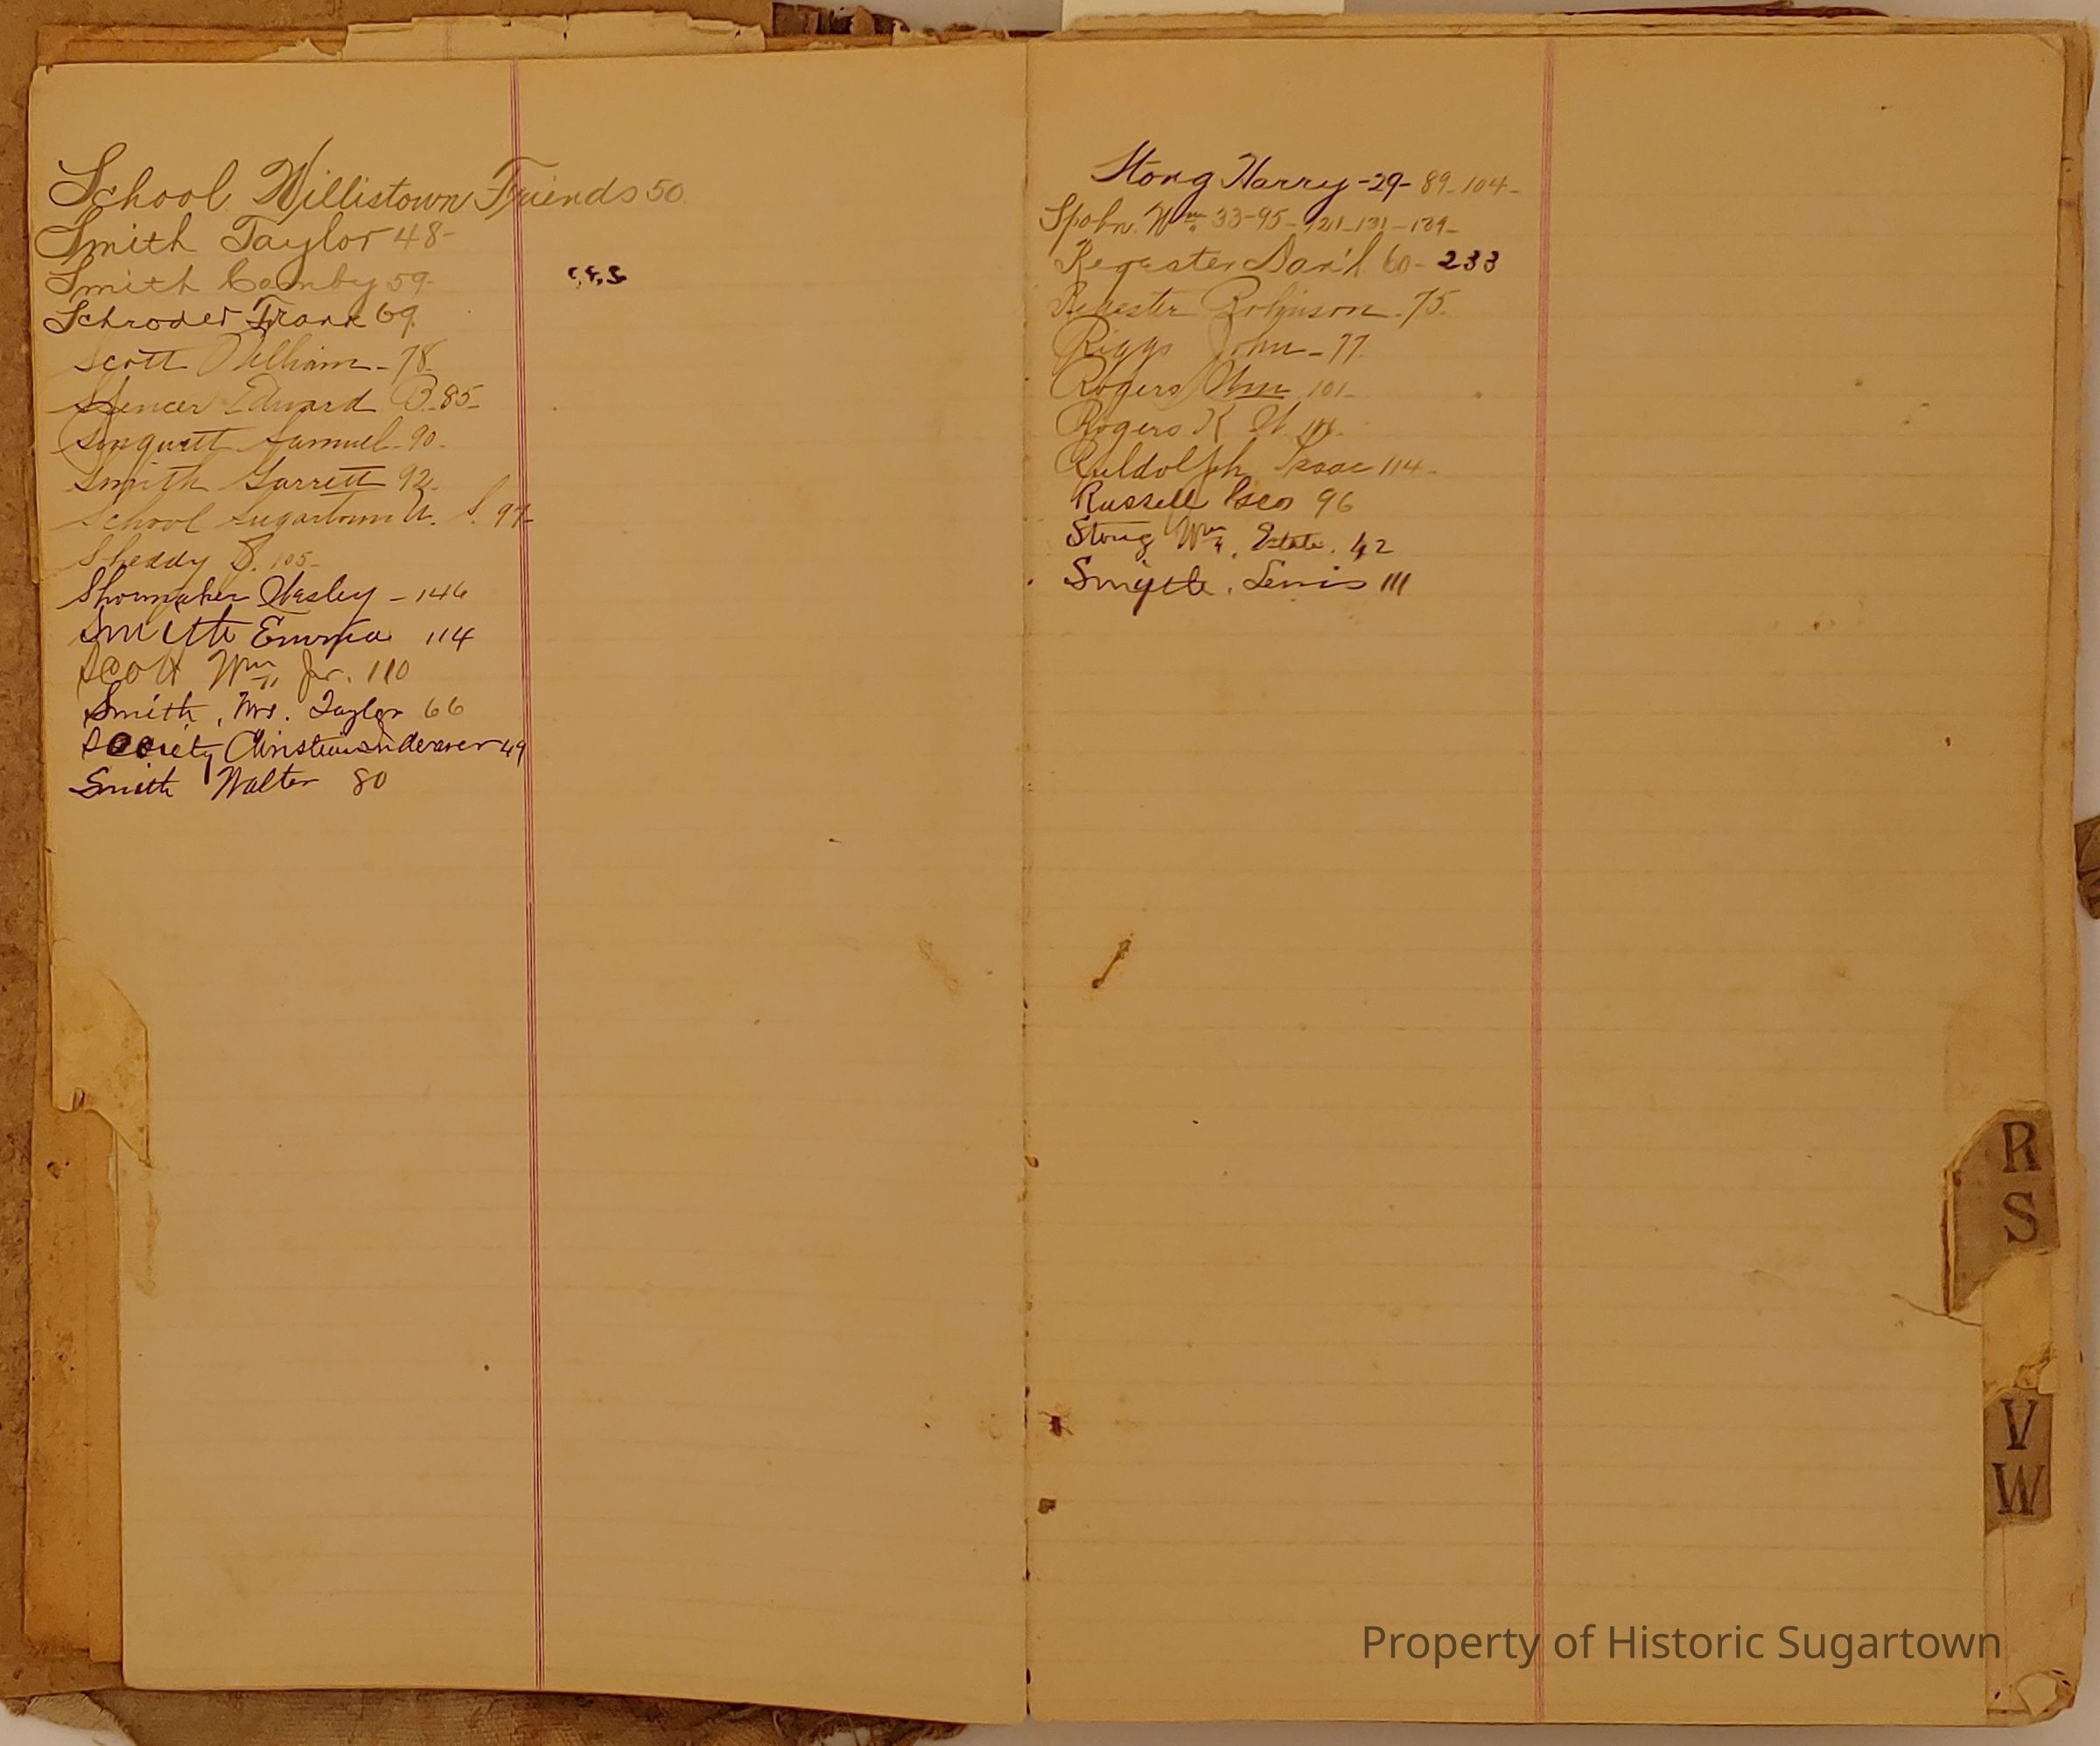 School Willistown Friends 50
Smith Taylor 48-
Smith Comby 59-
C.E.S
Schroder Frank 69.
Scott William - 78.
Spencer Edward B. 85-
Samuel - 90-
Smith Garrett 92-
School Sugartown S.
Sheddy 105-
Shoemaker Wesley - 146
Smith Emma 114
Scott Wm Jr. 110
Smith, Mrs. Taylor 66
Society Christian Endeaver 49
Smith Walter 80
Stong Harry -29- 89-104-
Spohn. Wm 33-95-121-131-139-
Regester Dan'l 60- 233
Regester Robinson - 75.
Riggs John - 77.
Rogers Wm 101-
Rogers K
Ruldolph Isaac 114-
Russell Geo 96
Stong Wm, Estate. 42
Smythe, Lewis 111
R
S
V
W
Property of Historic Sugartown